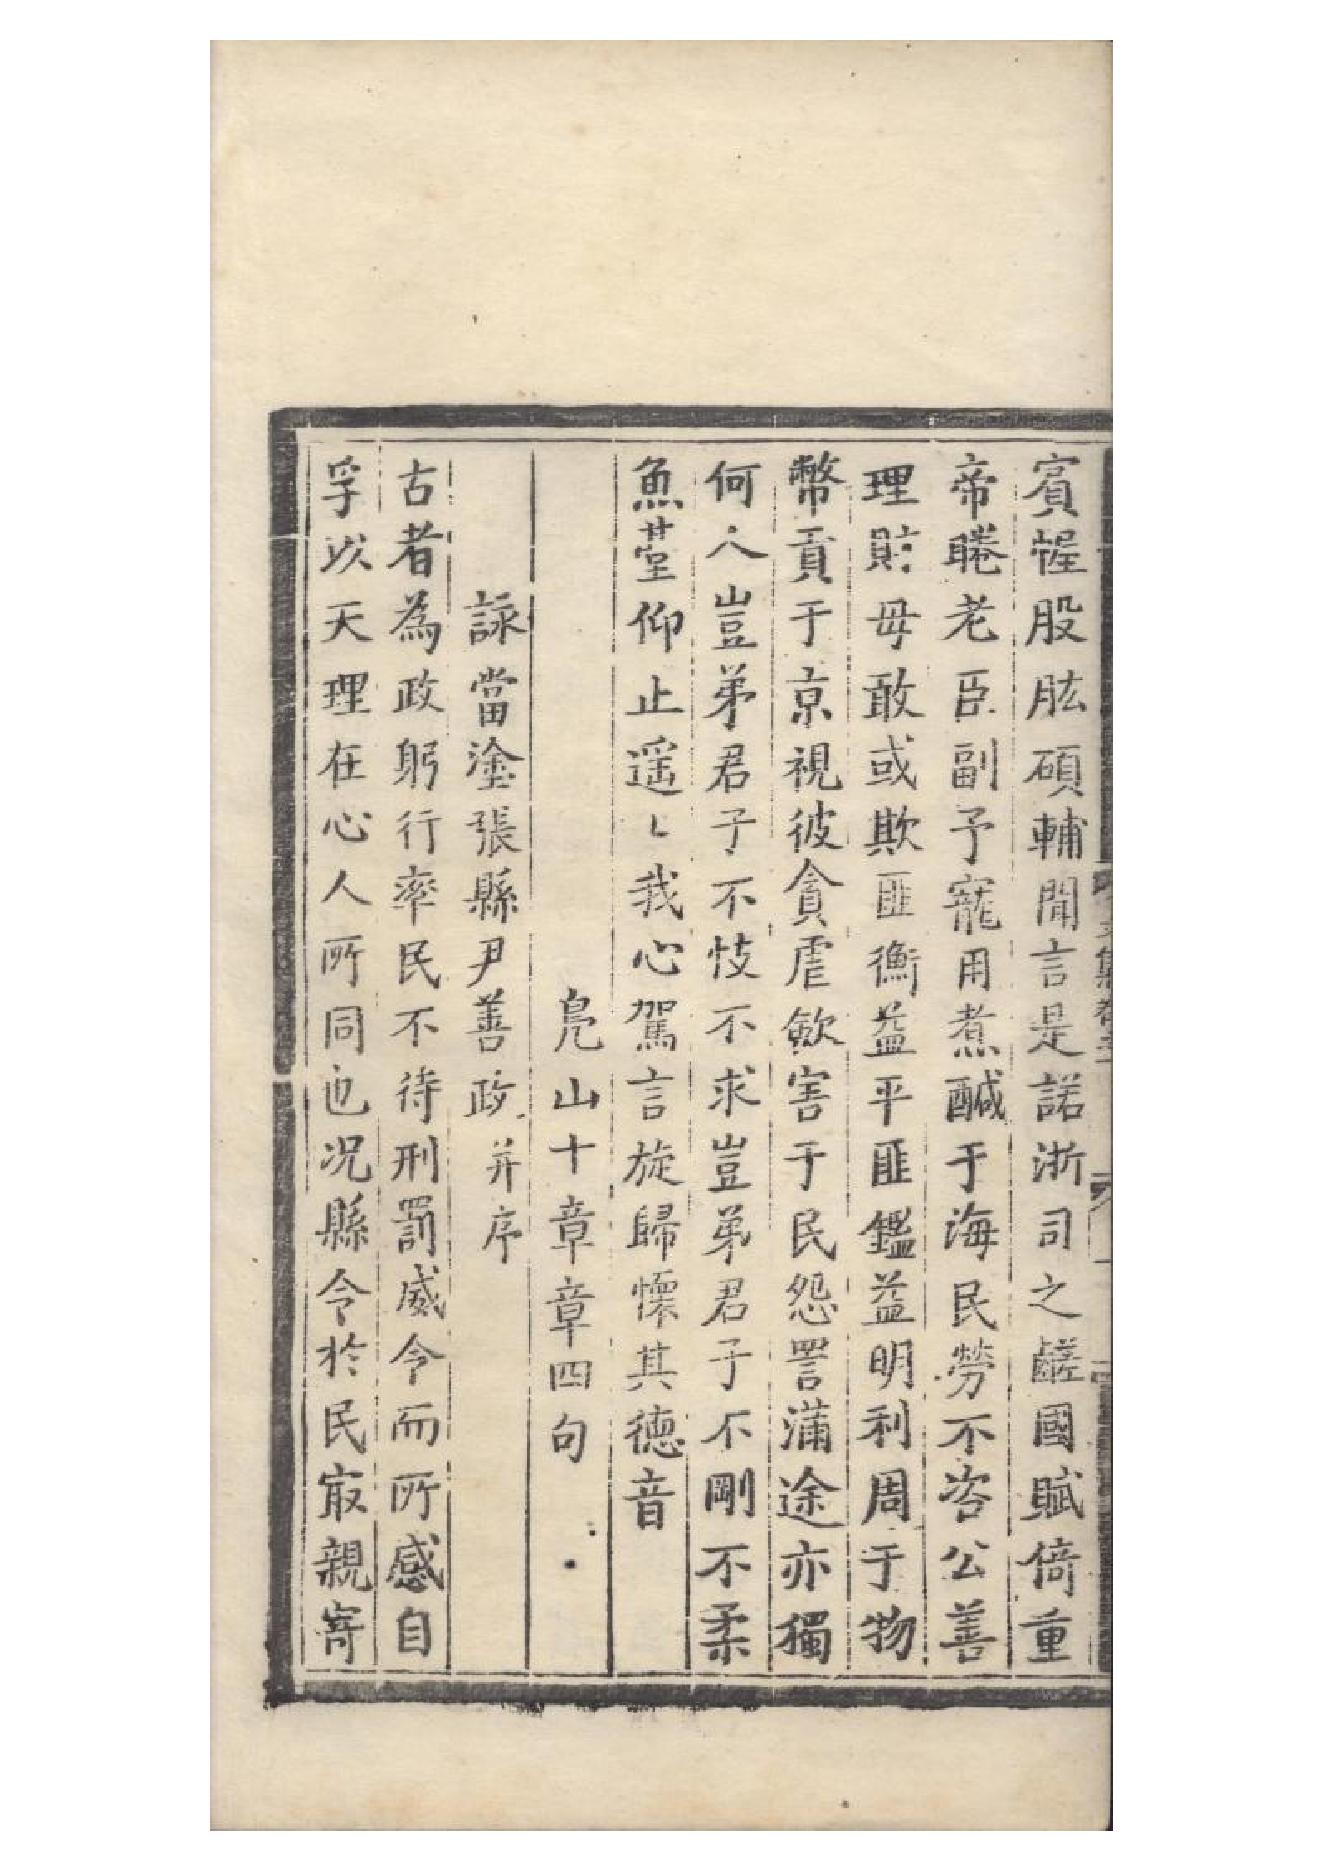 賓幄股肱碩輔聞言是諾浙司之鹺國賦倚重
帝睠老臣副予寵用煮醎于海民勞不咨公善
理財毋敢或欺匪衡益平匪鑑益明利周于物
幣貢于京視彼貪虐斂害于民怨詈滿途亦獨
何人豈弟君子不忮不求豈弟君子不剛不柔
魚䑓仰止遥〻我心駕言旋歸懷其德音
鳧山十章章四句
詠當塗張縣尹善政并序
古者為政躬行率民不待刑罰威令而所感自
孚以天理在心人所同也况縣令於民㝡親寄